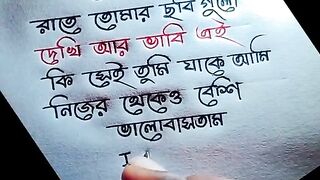 রাতে তোমার ছবি গুলো
দেখি আর ভাবি এই
কি সেই তুমি যাকে আমি
নিজের থেকেও বেশি
ভালোবাসতাম